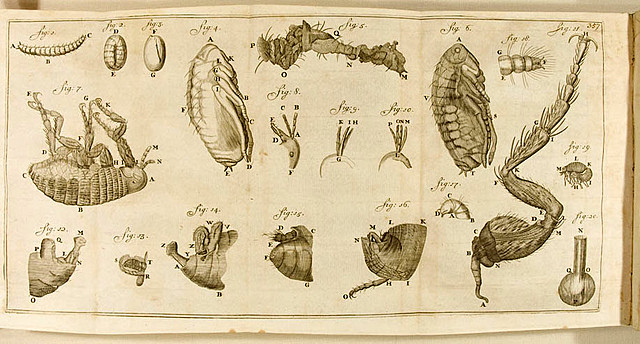 357
fig: 1.
A B C
fig. 2.
D E
fig. 3.
F G
fig: 4.
A K L G H I F B C D E
fig: 5.
P Q O N M
fig: 6.
A V S
fig. 18.
G
fig: 21.
H G I F K D E L M C B N A
fig: 7.
E F G K D H M N A C B
fig: 8.
B C E A D F
fig: 9.
K I H G
fig: 10.
P O N M
fig. 19.
L K M I
fig: 17.
C B A
fig: 12.
P Q M N L O
fig: 13.
S T R
fig: 14.
W V Z Y A B
fig: 15.
D C E F G
fig: 16.
M L K N O H I
N Q O P